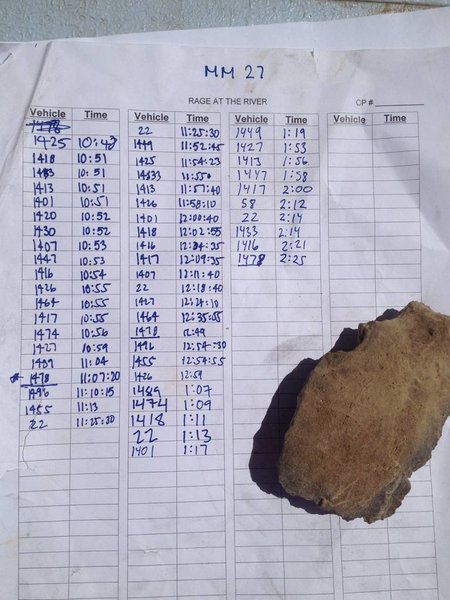 MM 27
RAGE AT THE RIVER CP #
Vehicle Time Vehicle Time Vehicle Time Vehicle Time
1425 10:43
1418 10:51
10:51
1413 10:51
1401 10:51
1420 10:52
1430 10:52
1407 10:53
1447 10:53
1416 10:54
1426 10:55
1464 10:55
1417 10:55
1474 10:56
1427 10:59
1489 11:04
1478 11:07:20
1496 11:10:15
1455 11:13
22 11:25:30
22 11:25:30
1449 11:52:45
1425 11:54:23
11:550
1413 11:57:40
1426 11:58:10
1401 12:00:40
1418 12:02:55
1416 12:04:35
1417 12:09:35
1407 12:11:40
22 12:18:40
1427 12:24:10
1464 12:35:55
1478 12:49
1496 12:54:30
1455 12:54:55
1426 12:59
1489 1:07
1474 1:09
1418 1:11
22 1:13
1401 1:17
1449 1:19
1427 1:53
1413 1:56
1447 1:58
1417 2:00
58 2:12
22 2:14
1433 2:14
1416 2:21
1478 2:25